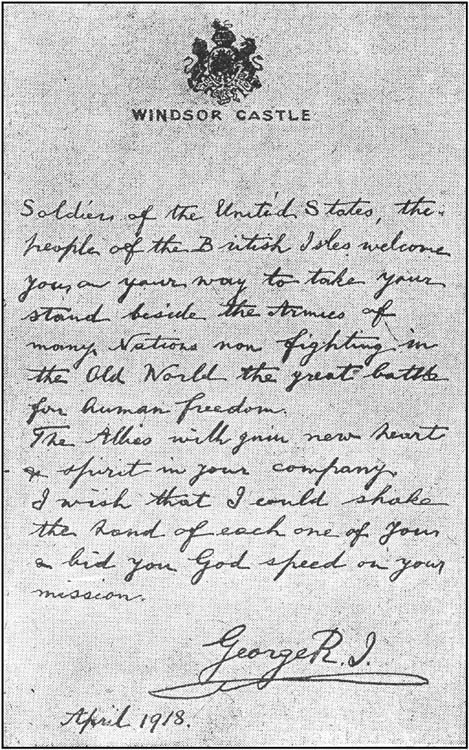 WINDSOR CASTLE
Soldiers of the United States, the
people of the British Isles welcome
you on your way to take your
stand beside the Armies of
many Nations now fighting in
the Old World the great battle
for human freedom.
The Allies will gain new heart
& spirit in your company.
I wish that I could shake
the hand of each one of you
& bid you God speed on your
mission.
George R.I.
April 1918.